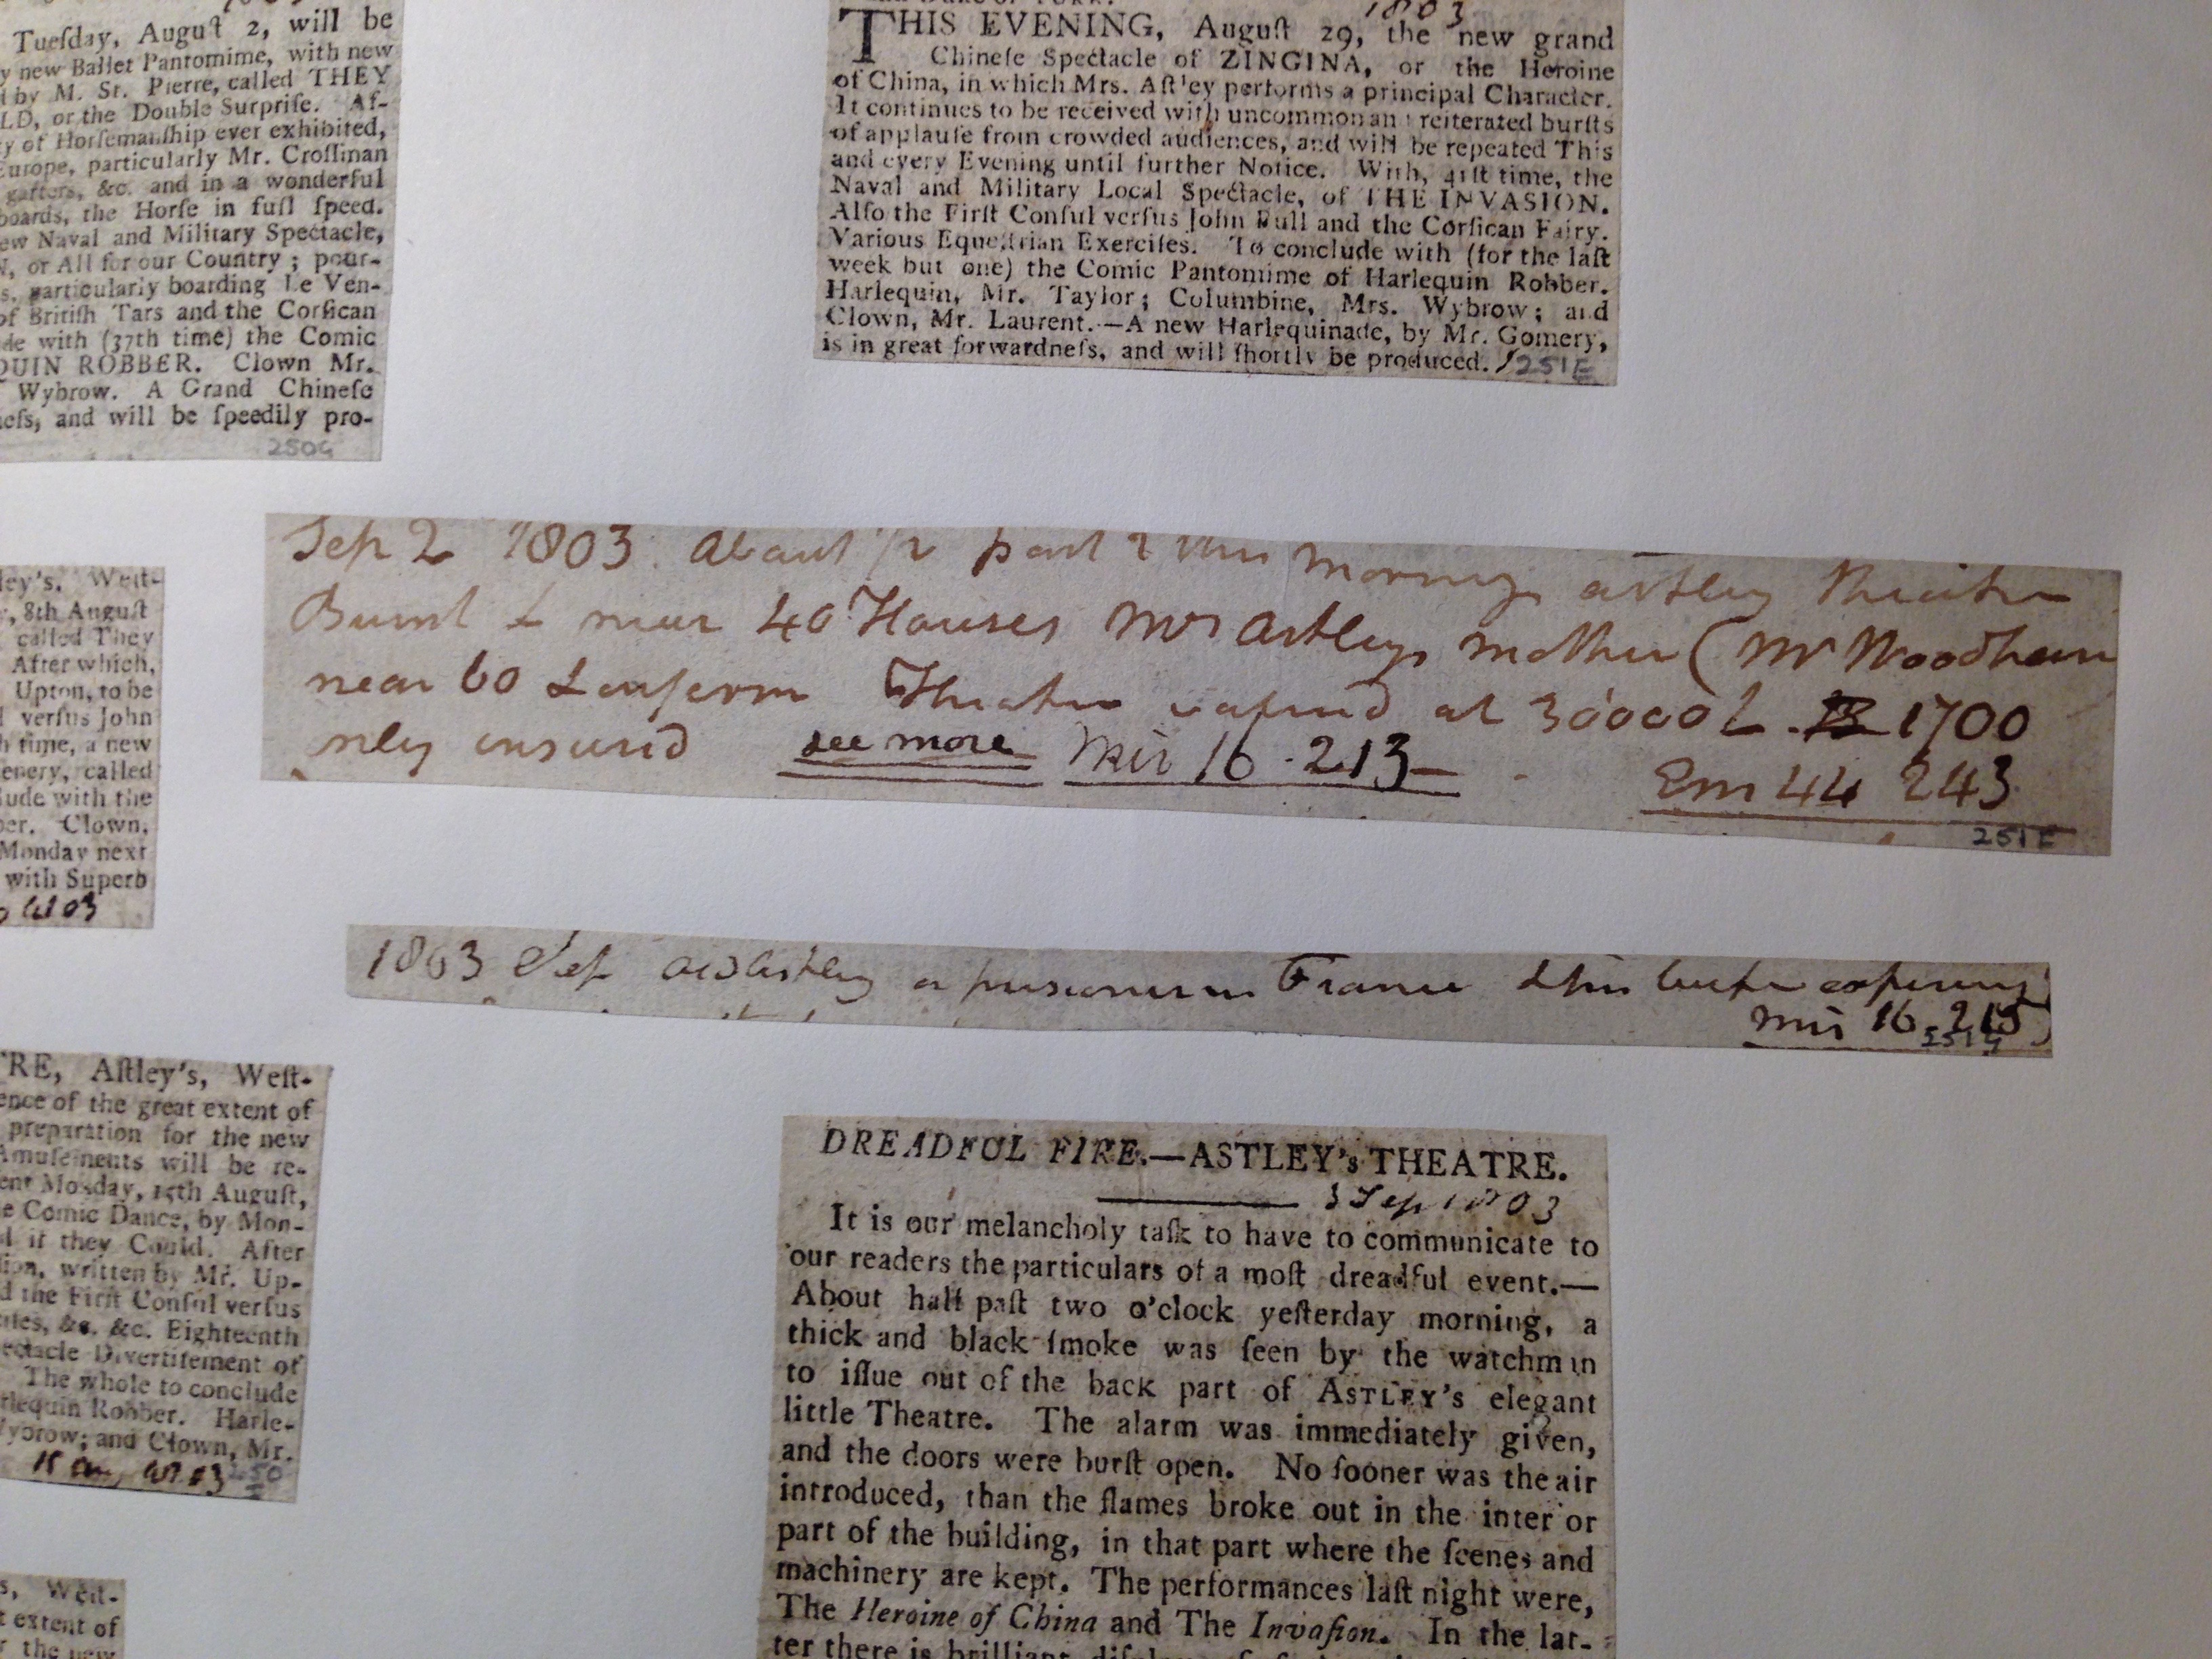 Tueſday, Auguſt 2, will be
new Ballet Pantomime, with new
by M. St. Pierre, called THEY
LD, or the Double Surpriſe. Af-
of Horſemanſhip ever exhibited,
Europe, particularly Mr. Croſſman
garters, &c. and in a wonderful
boards, the Horſe in full ſpeed.
ew Naval and Military Spectacle,
N, or All for our Country ; pour-
s, particularly boarding Le Ven-
of Britiſh Tars and the Corſican
de with (37th time) the Comic
QUIN ROBBER. Clown Mr.
Wybrow. A Grand Chineſe
neſs, and will be ſpeedily pro-
250G
1803
THIS EVENING, Auguſt 29, the new grand
Chineſe Spectacle of ZINGINA, or the Heroine
of China, in which Mrs. Aſtley performs a principal Character.
It continues to be received with uncommon an reiterated burſts
of applauſe from crowded audiences, and will be repeated This
and every Evening until further Notice. With, 41ſt time, the
Naval and Military Local Spectacle, of THE INVASION.
Alſo the Firſt Conſul verſus John Bull and the Corſican Fairy.
Various Equeſtrian Exerciſes. To conclude with (for the laſt
week but one) the Comic Pantomime of Harlequin Robber.
Harlequin, Mr. Taylor; Columbine, Mrs. Wybrow; and
Clown, Mr. Laurent.—A new Harlequinade, by Mr. Gomery,
is in great forwardneſs, and will ſhortly be produced.
251E
Sep 2 1803. About 1/2 past 2 this morning astley Theatre
Burnt & near 40 Houses Mrs Astleys mother (Mr Woodham
near 60 & Theatre at 30000L 1700
nly insured see more Mir 16-213
Em 44 243
251E
1803 Sep old Astley a prisoner in France & his
mir 16 215
251G
ley's, Weſt-
, 8th Auguſt
called They
After which,
Upton, to be
verſus John
h time, a new
enery, called
lude with the
er. Clown,
Monday next
with Superb
1803
RE, Aſtley's, Weſt-
ence of the great extent of
preparation for the new
Amuſements will be re-
ent Monday, 15th Auguſt,
e Comic Dance, by Mon-
if they Could. After
ſion, written by Mr. Up-
d the Firſt Conſul verſus
&c. &c. Eighteenth
ectacle Divertiſement of
The whole to conclude
rlequin Robber. Harle-
Wybrow; and Clown, Mr.
15 Aug 1803
250
I
s, Weſt-
extent of
the new
DREADFUL FIRE.—ASTLEY's THEATRE.
3 Sep 1803
It is our melancholy taſk to have to communicate to
our readers the particulars of a moſt dreadful event.—
About half paſt two o'clock yeſterday morning, a
thick and black ſmoke was ſeen by the watchman
to iſſue out of the back part of ASTLEY's elegant
little Theatre. The alarm was immediately given,
and the doors were burſt open. No ſooner was the air
introduced, than the flames broke out in the interior
part of the building, in that part where the ſcenes and
machinery are kept. The performances laſt night were,
The Heroine of China and The Invaſion. In the lat-
ter there is brilliant